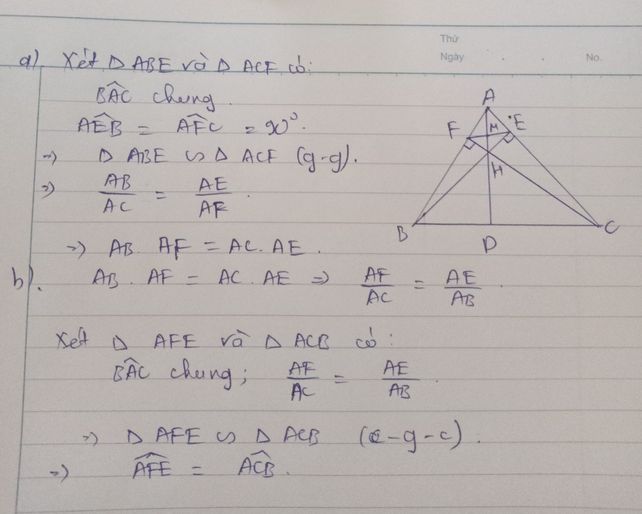 Thứ
Ngày . . No.
a) Xét Δ ABE và Δ ACF có:
B̂AC chung.
ÂEB = ÂFC = 90°.
=> Δ ABE ∽ Δ ACF (g-g).
=> AB/AC = AE/AF.
=> AB. AF = AC. AE.
b). AB. AF = AC. AE => AF/AC = AE/AB.
Xét Δ AFE và Δ ACB có:
B̂AC chung; AF/AC = AE/AB.
=> Δ AFE ∽ Δ ACB (c-g-c).
=> ÂFE = ÂCB.
A
F M E
H
B D C